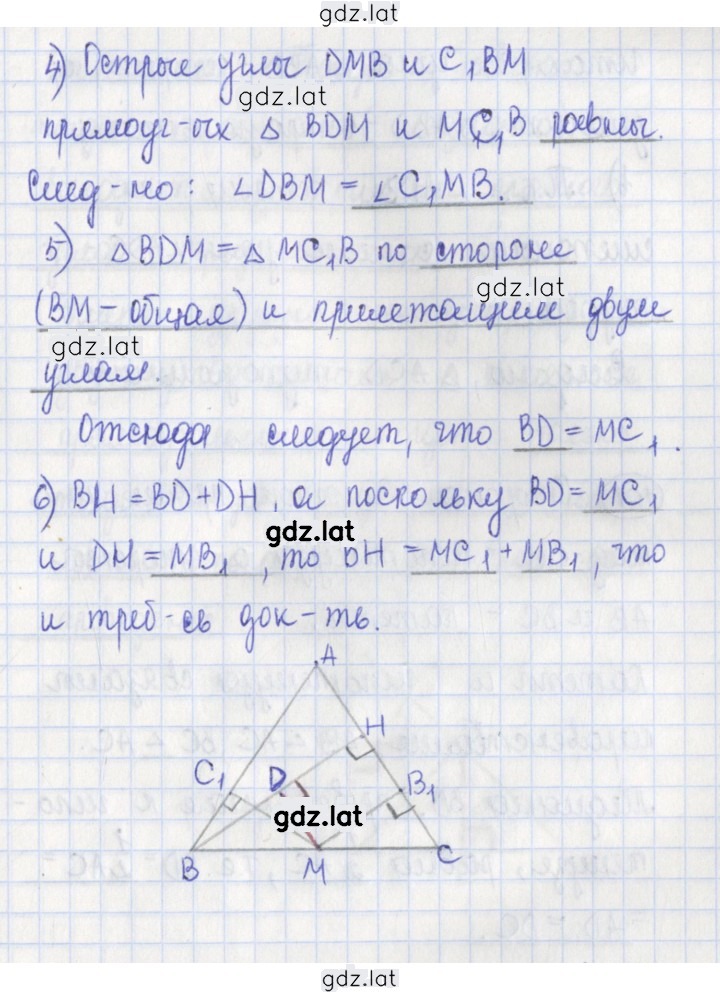 gdz.lat
4) Острые углы DMB и C₁BM
gdz.lat
прямоуг-ых △ BDM и MC₁B равны.
След-но: ∠DBM = ∠C₁MB.
5) △ BDM = △ MC₁B по стороне
gdz.lat
(BM – общая) и прилежащим двум
gdz.lat
углам
Отсюда следует, что BD = MC₁.
6) BH = BD + DH, а поскольку BD = MC₁
gdz.lat
и DH = MB₁, то BH = MC₁ + MB₁, что
и треб-сь док-ть.
A
H
C₁ D B₁
gdz.lat
B M C
gdz.lat